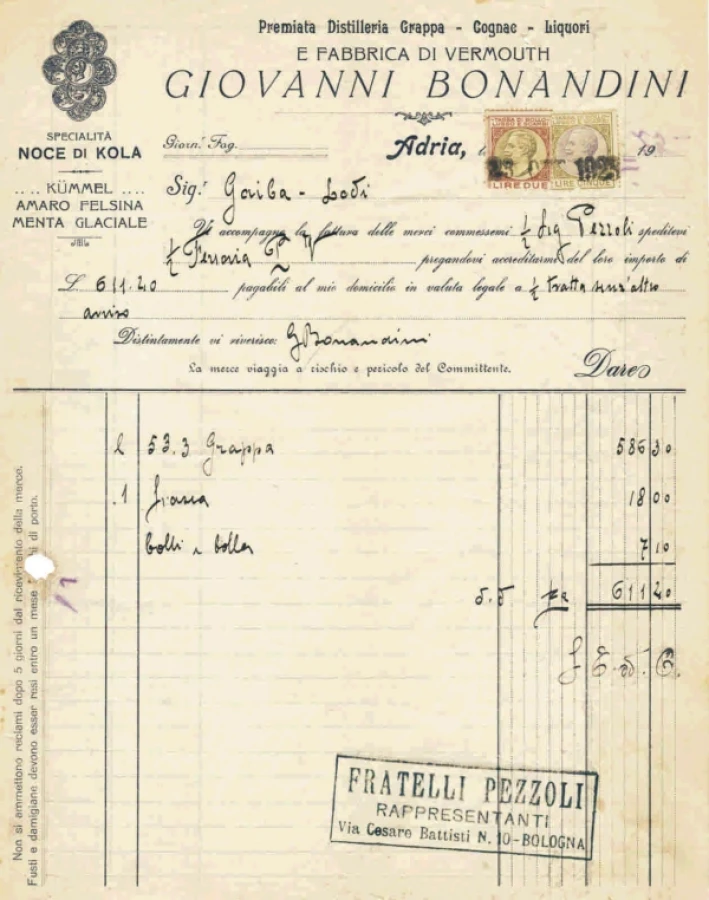 Premiata Distilleria Grappa - Cognac - Liquori
E FABBRICA DI VERMOUTH
GIOVANNI BONANDINI
SPECIALITÀ
NOCE DI KOLA
.. .. KÜMMEL .. ..
AMARO FELSINA
MENTA GLACIALE
Giorn.e Fog.
Adria, 19
LIRE DUE LIRE CINQUE
Sig.r Gariba - Lodi
Vi accompagno la fattura delle merci commessemi ½ Sig Pezzoli speditevi
½ Ferrovia P V pregandovi accreditarmi del loro importo di
L. 611.20 pagabili al mio domicilio in valuta legale a ½ tratta senz'altro
avviso
Distintamente vi riverisco: G Bonandini
La merce viaggia a rischio e pericolo del Committente.
Dare
l 53.3 Grappa 586 30
1 18 00
bolli e bolla 7 10
611 20
Non si ammettono reclami dopo 5 giorni dal ricevimento della merce.
Fusti e damigiane devono esser resi entro un mese di porto.
FRATELLI PEZZOLI
RAPPRESENTANTI
Via Cesare Battisti N. 10 - BOLOGNA